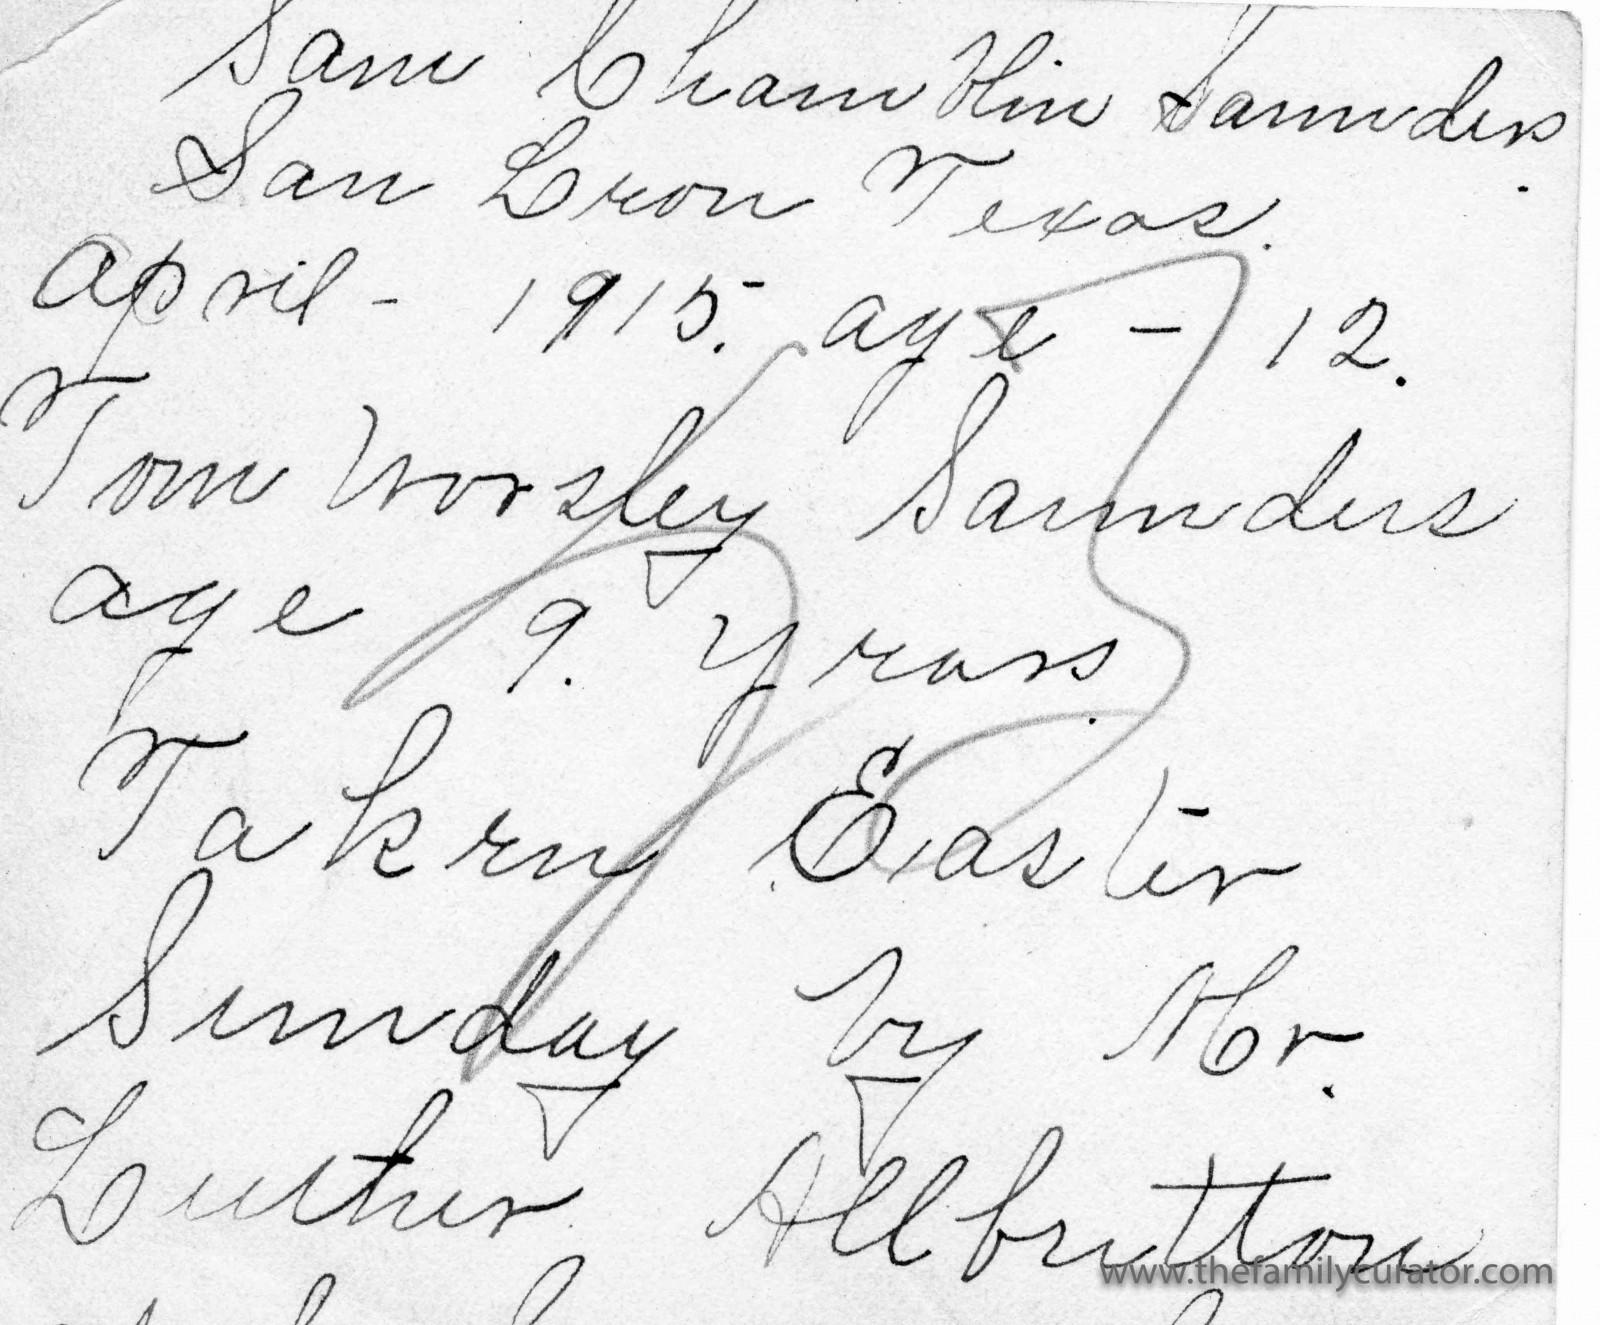 Sam Chamblin Saunders.
San Leon Texas.
April - 1915. age - 12.
Tom Worsley Saunders
age 9. years.
Taken Easter
Sunday by Mr.
Luther Allbritton
www.thefamilycurator.com